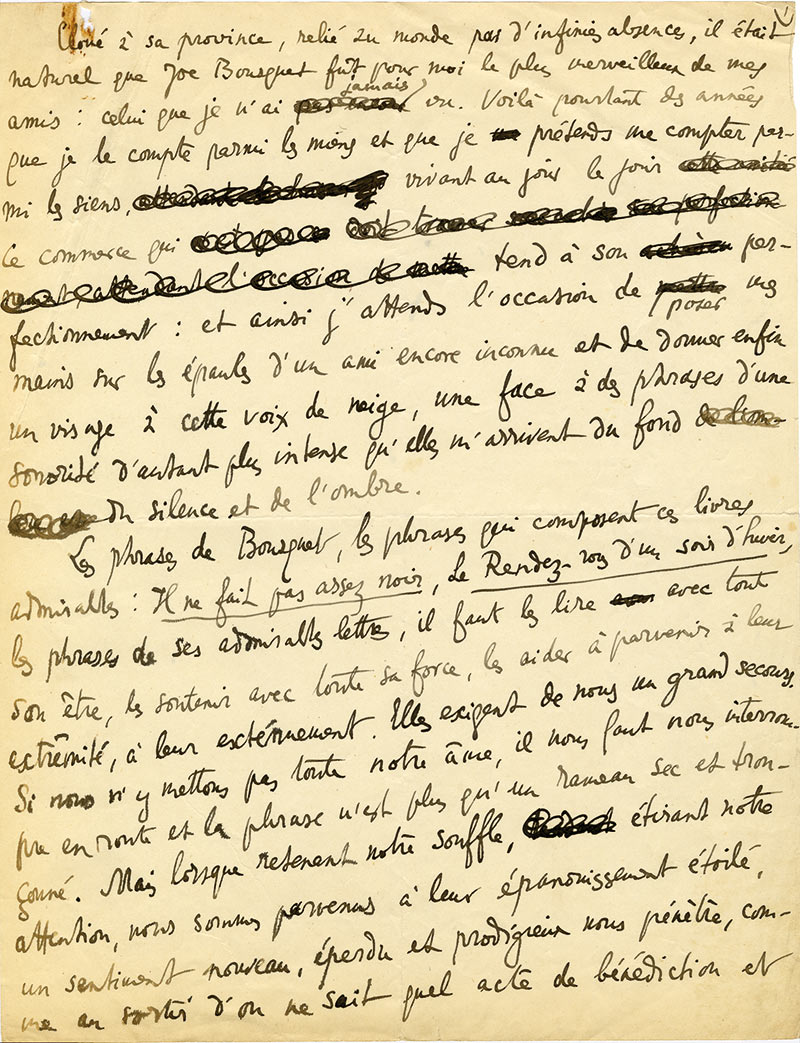 Cloué à sa province, relié au monde par d'infinies absences, il était
naturel que Joe Bousquet fût pour moi le plus merveilleux de mes
amis : celui que je n'ai jamais vu. Voilà pourtant des années
que je le compte parmi les miens et que je prétends me compter par-
mi les siens, vivant au jour le jour
ce commerce qui
tend à son per-
fectionnement : et ainsi j'attends l'occasion de poser mes
mains sur les épaules d'un ami encore inconnu et de donner enfin
un visage à cette voix de neige, une face à des phrases d'une
sonorité d'autant plus intense qu'elles m'arrivent du fond
du silence et de l'ombre.
Les phrases de Bousquet, les phrases qui composent ces livres
admirables : Il ne fait pas assez noir, Le Rendez-vous d'un soir d'hiver,
les phrases de ses admirables lettres, il faut les lire avec tout
son être, les soutenir avec toute sa force, les aider à parvenir à leur
extrêmité, à leur exténuement. Elles exigent de nous un grand secours.
Si nous n'y mettons pas toute notre âme, il nous faut nous interrom-
pre en route et la phrase n'est plus qu'un rameau sec et tron-
çonné. Mais lorsque retenant notre souffle, étirant notre
attention, nous sommes parvenus à leur épanouissement étoilé,
un sentiment nouveau, éperdu et prodigieux nous pénètre, com-
me au sortir d'on ne sait quel acte de bénédiction et